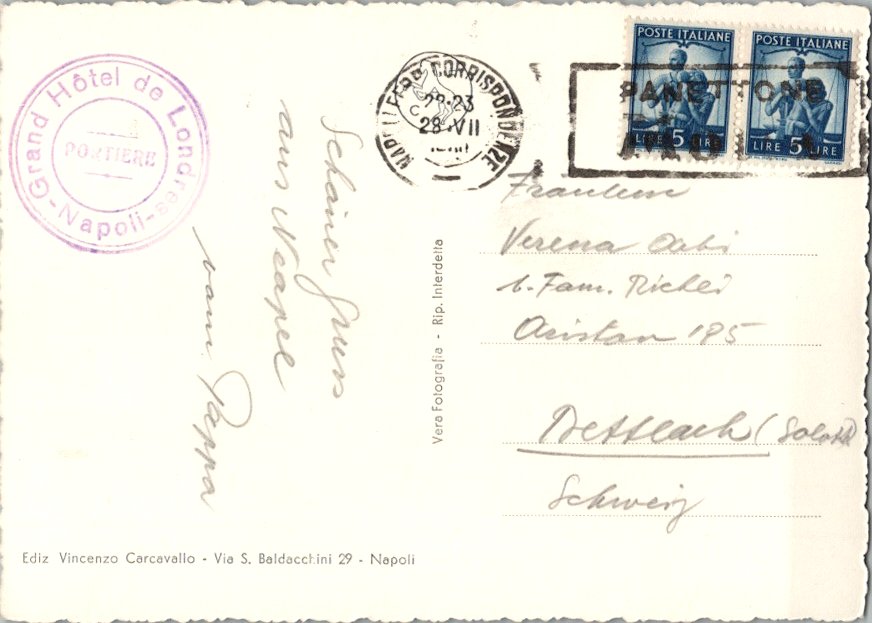 Grand Hôtel de Londres
-Napoli-
PORTIERE
NAPOLI FERR. CORRISPONDENZE
22-23
28.VII
POSTE ITALIANE
LIRE 5 LIRE
POSTE ITALIANE
LIRE 5 LIRE
PANETTONE
Schöner Gruss
aus Neapel
vom Pappa
Vera Fotografia - Rip. Interdetta
Fräulein
Verena
b. Fam.
185
Bettlach (Soloth
Schweiz
Ediz Vincenzo Carcavallo - Via S. Baldacchini 29 - Napoli